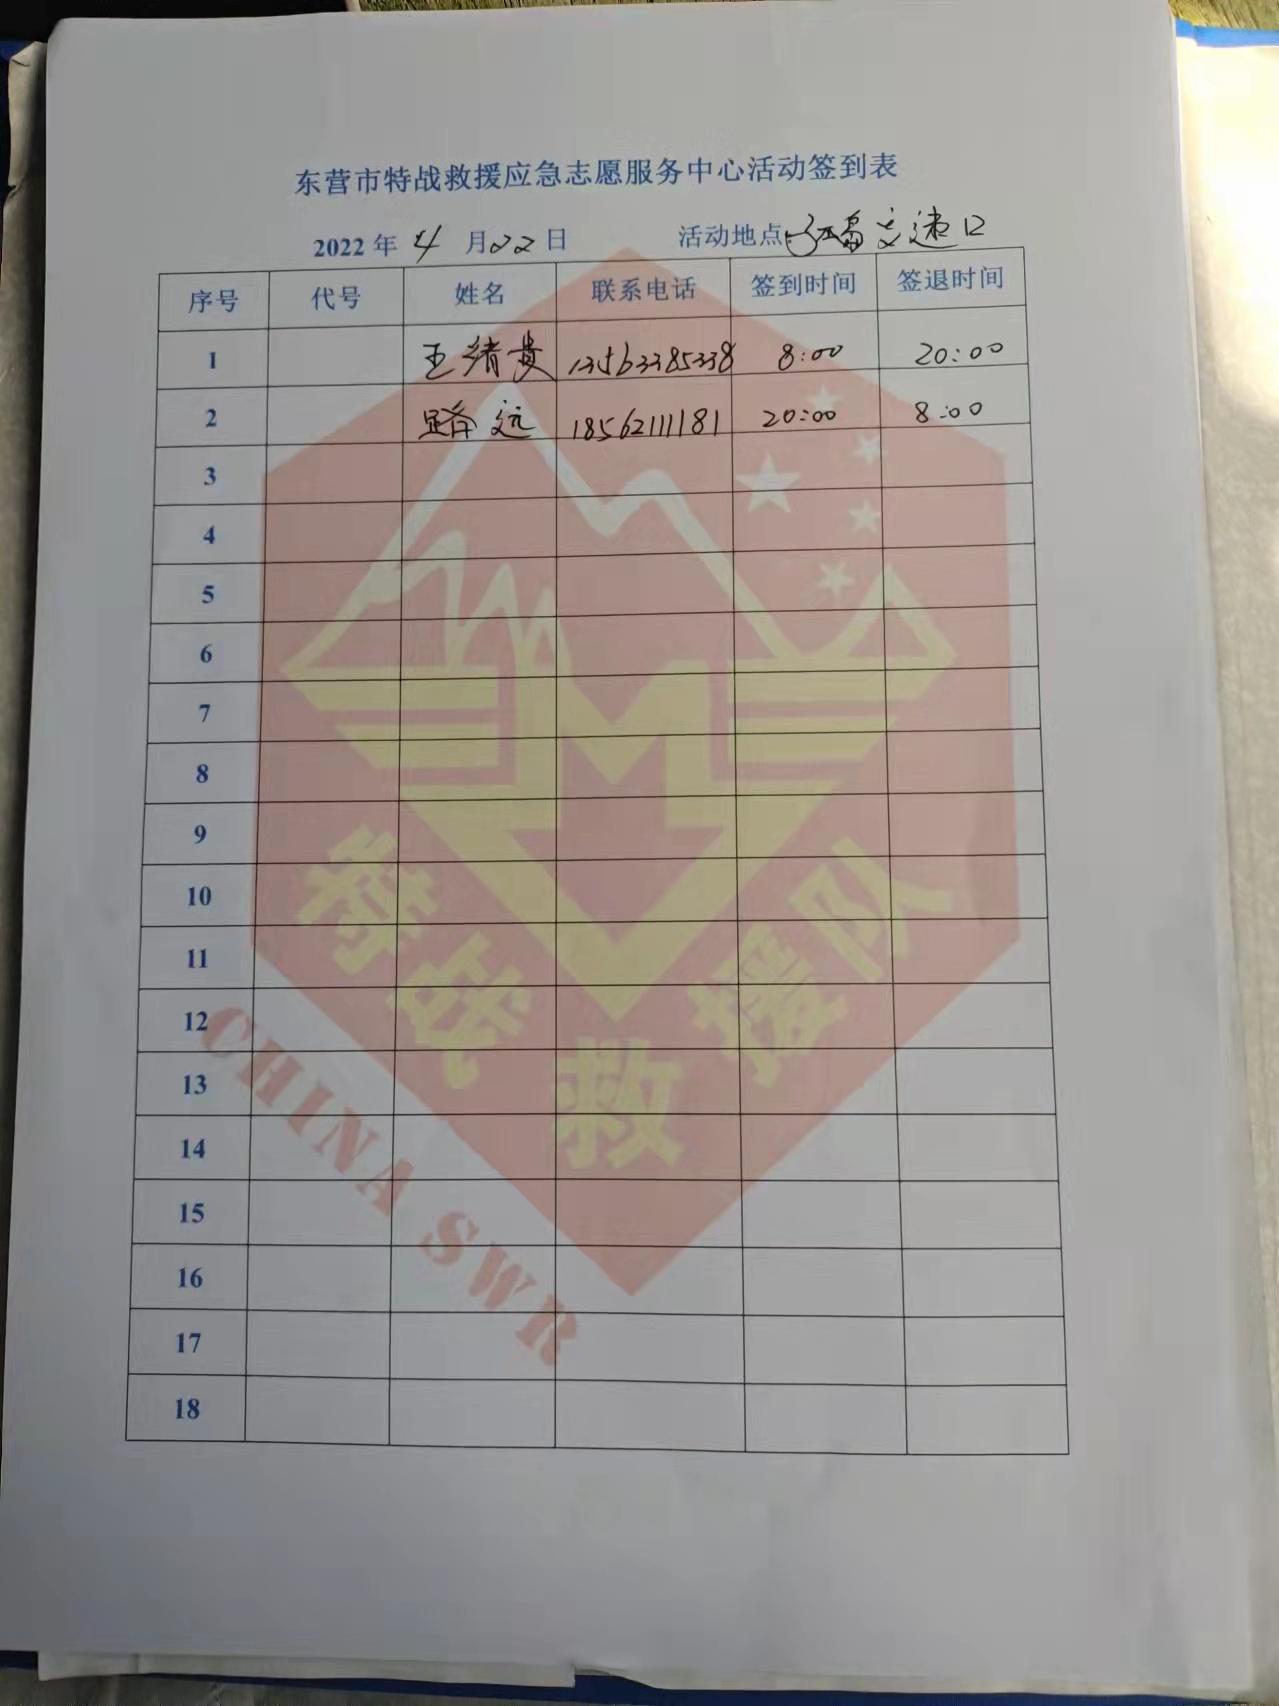 东营市特战救援应急志愿服务中心活动签到表
2022 年 4 月 22 日 活动地点: 高速口
序号 代号 姓名 联系电话 签到时间 签退时间
1 王绪贵 13563385338 8:00 20:00
2 路远 18562111181 20:00 8:00
3
4
5
6
7
8
9
10
11
12
13
14
15
16
17
18
特战救援队
CHINA SWR